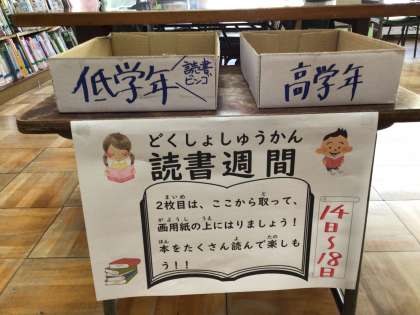 低学年
読書
ビンゴ
高学年
どくしょしゅうかん
読書週間
まいめ と
2枚目は、ここから取って、
がようし うえ
画用紙の上にはりましょう！
ほん よ たの
本をたくさん読んで楽しも
う！！
14日～18日